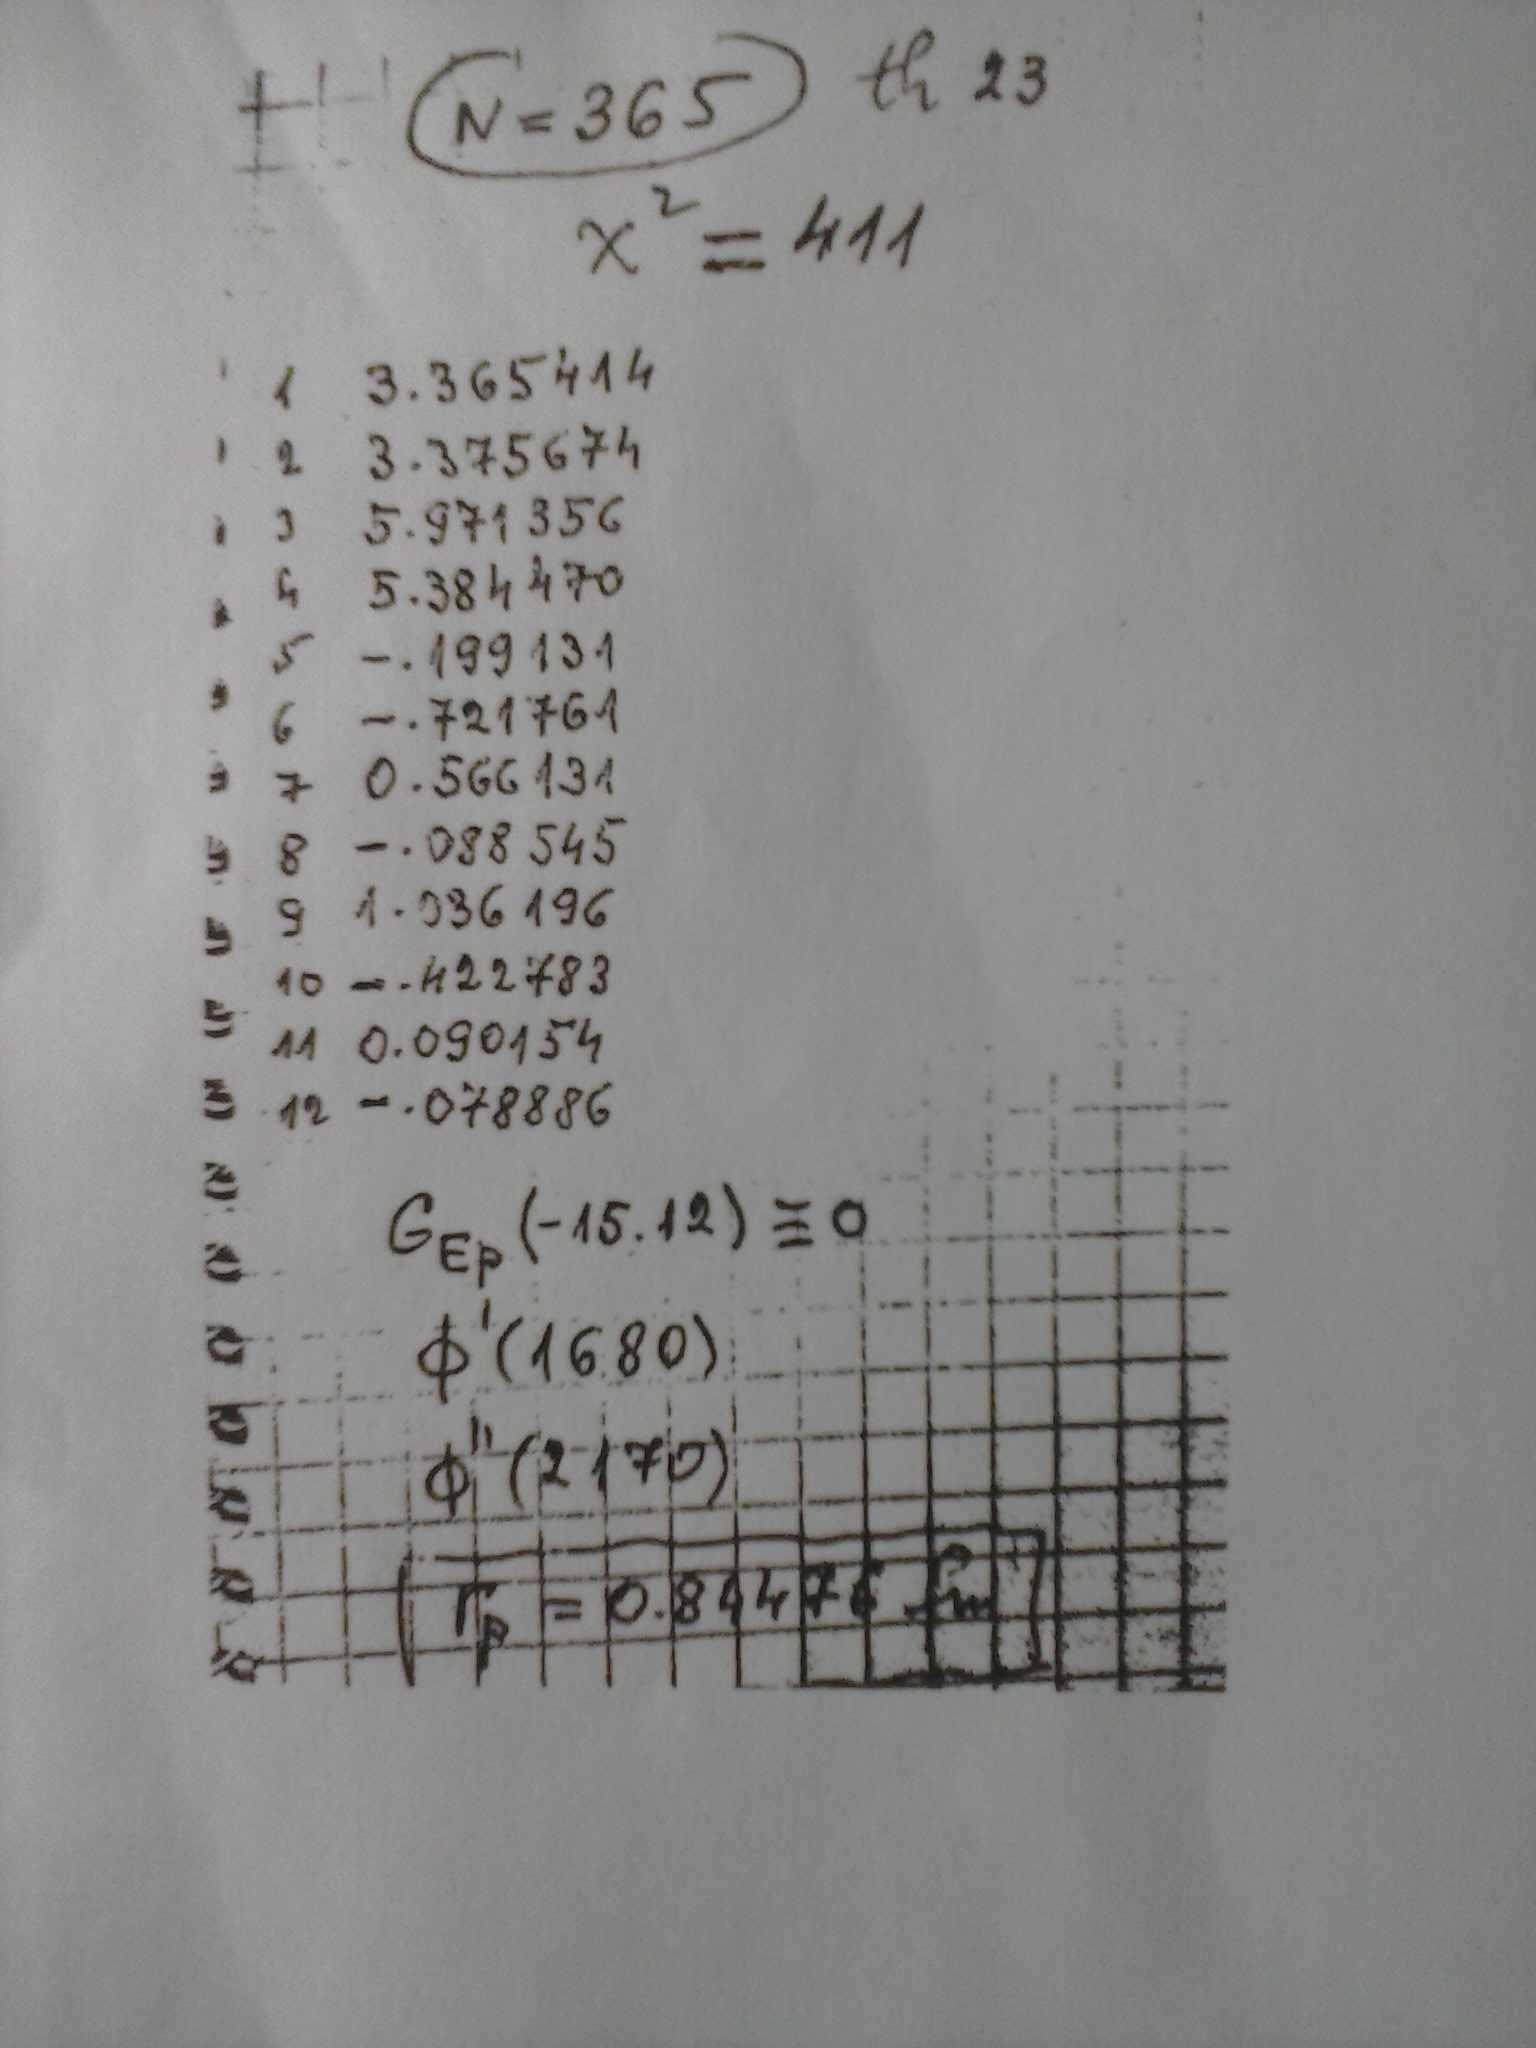 N = 365 th 23
χ² = 411
1 3.365414
2 3.375674
3 5.971356
4 5.384470
5 -.199131
6 -.721761
7 0.566131
8 -.088545
9 1.036196
10 -.422783
11 0.090154
12 -.078886
G_Ep (-15.12) ≅ 0
ϕ' (1680)
ϕ'' (2170)
r_p = 0.84476 fm